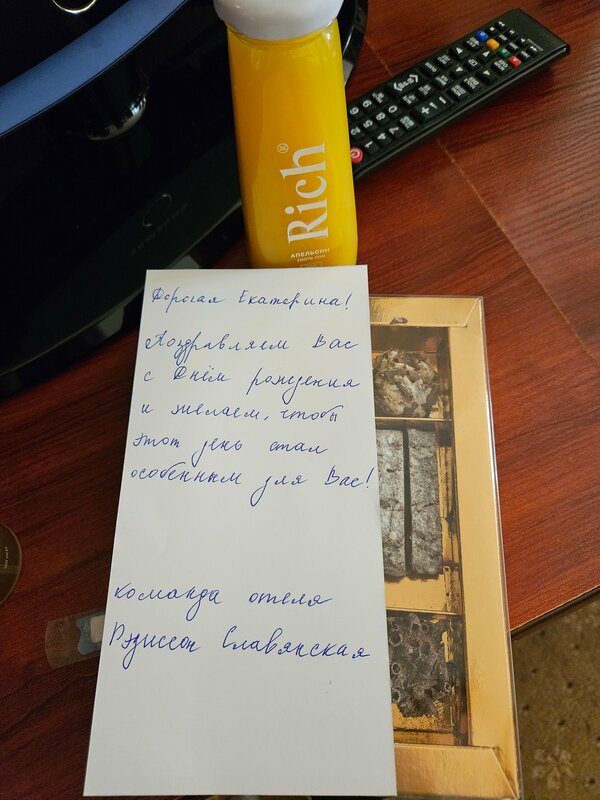 Rich®
АПЕЛЬСИН
100% СОК
Дорогая Екатерина!
Поздравляем Вас
с Днём рождения
и желаем, чтобы
этот день стал
особенным для Вас!
команда отеля
Рэдиссон Славянская